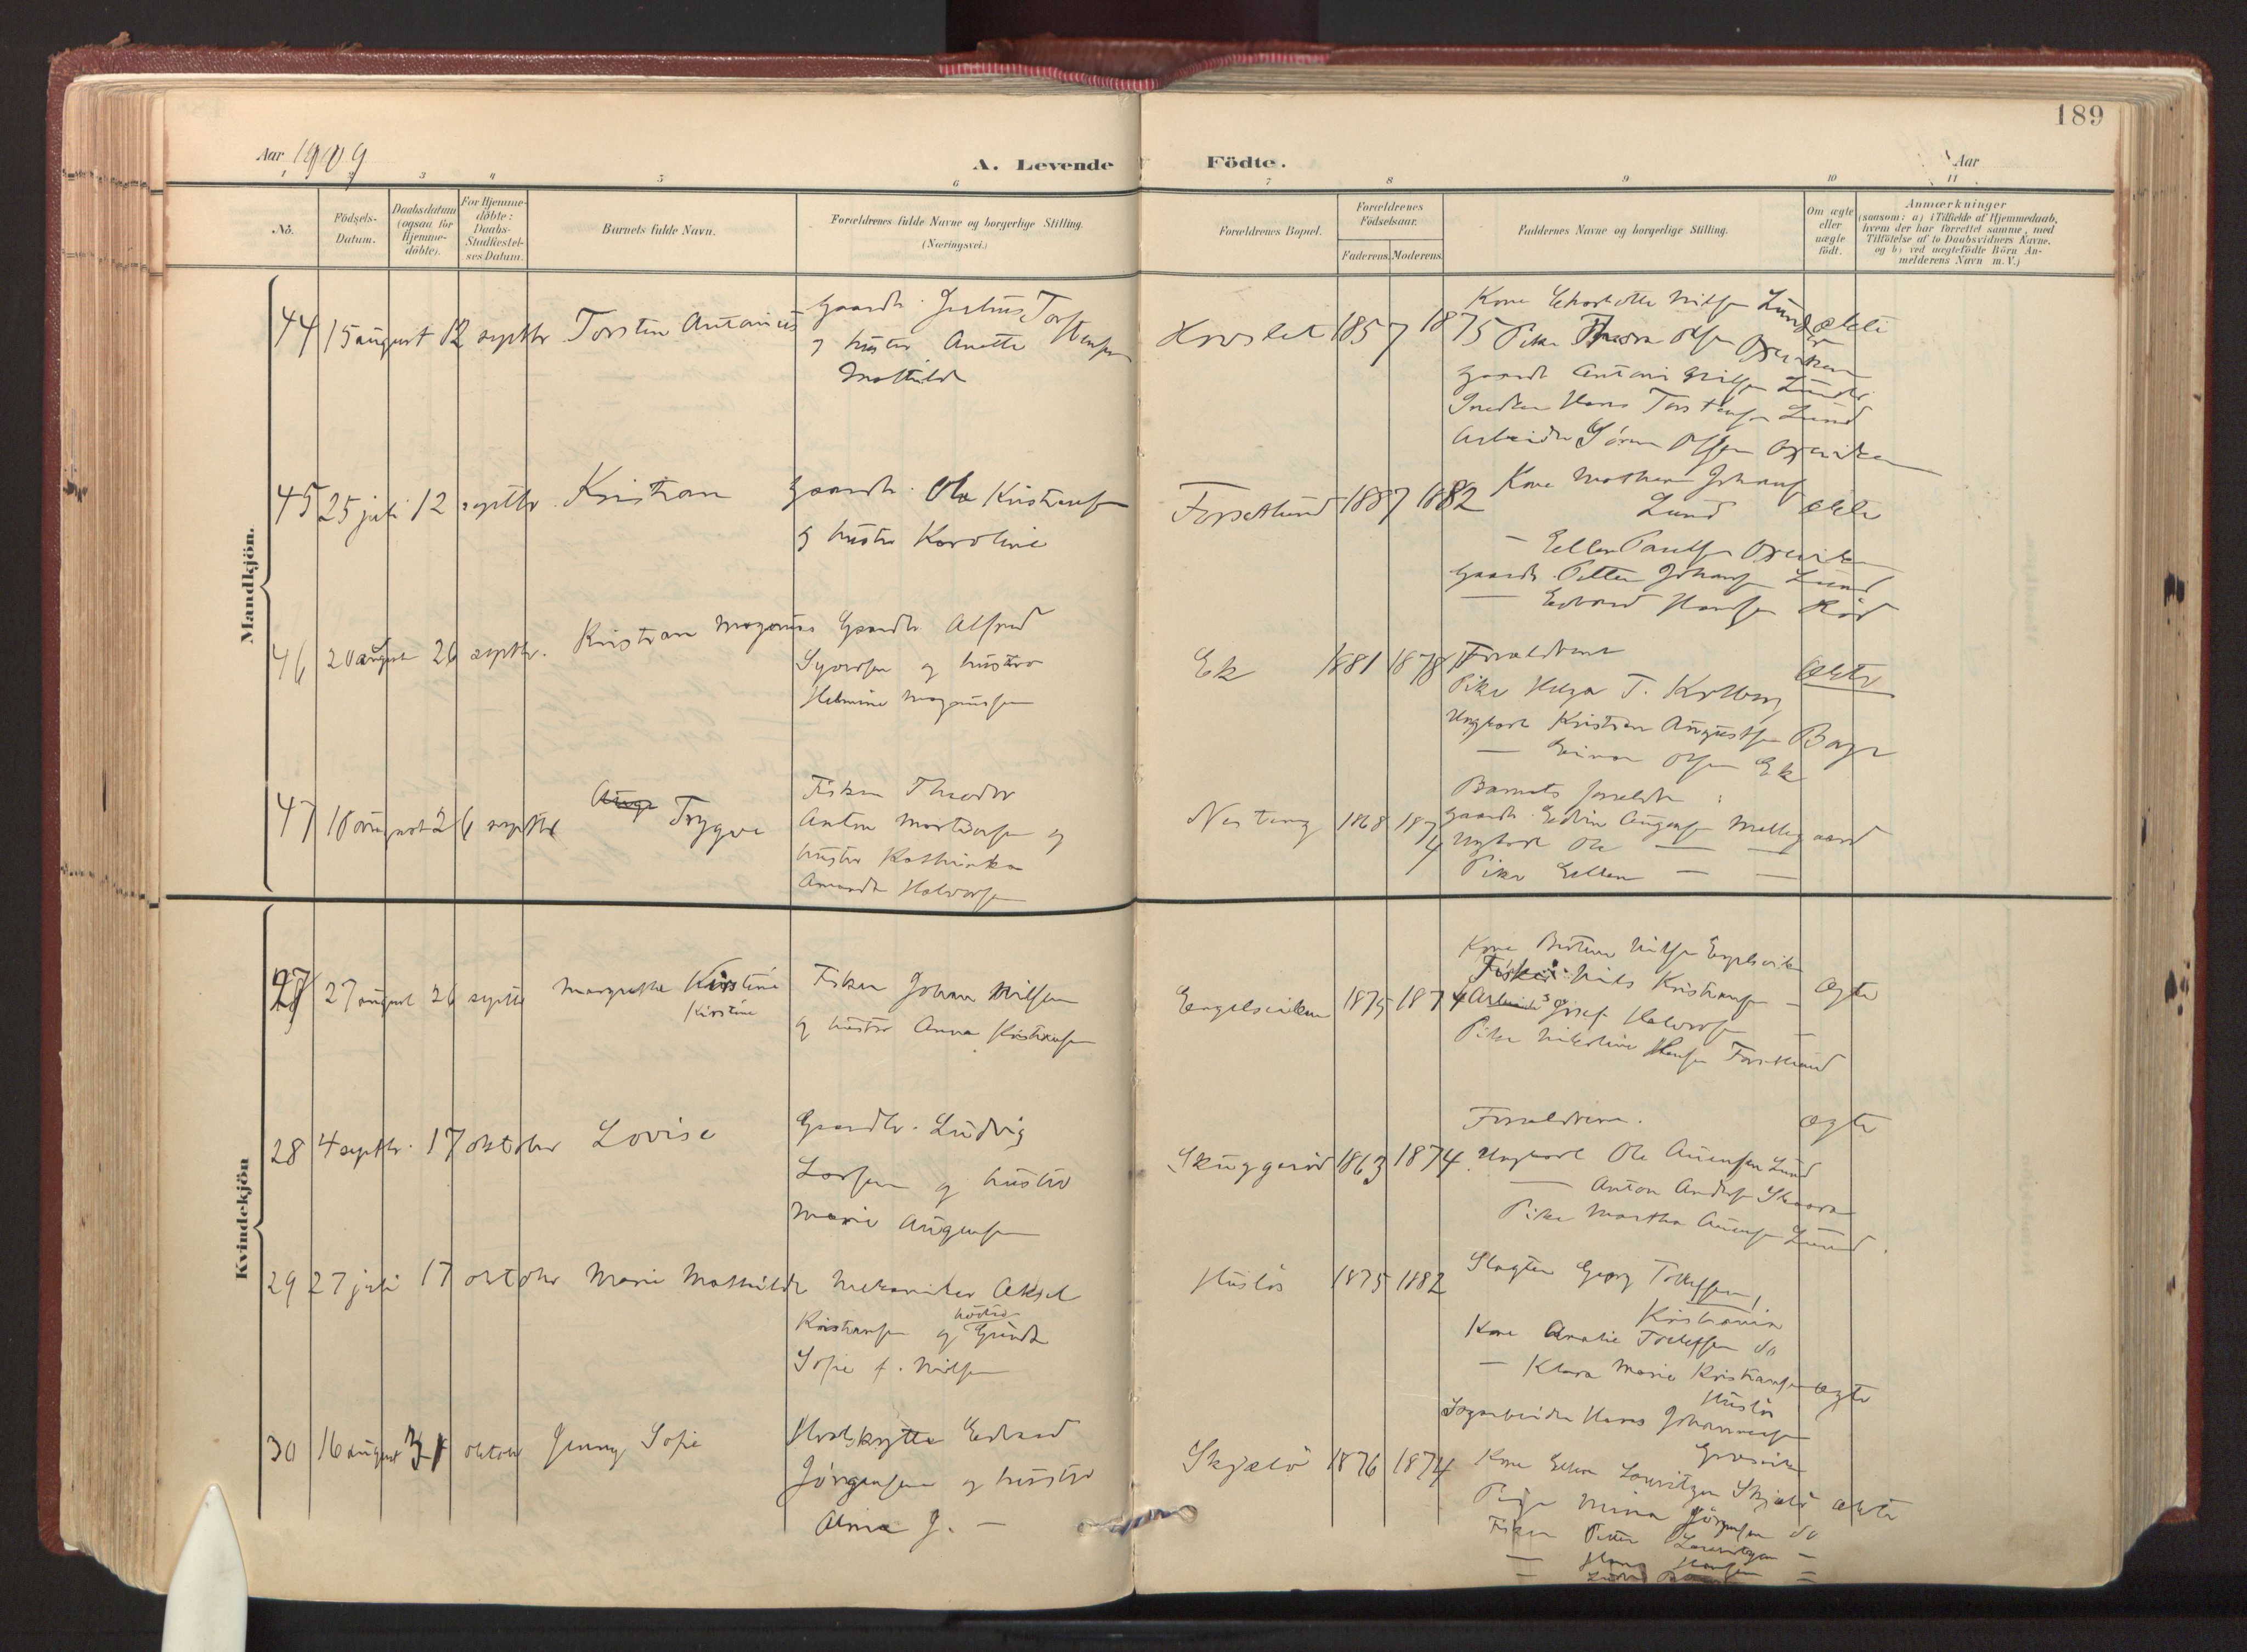 189
Aar 1909
A. Levende Födte.
Aar
1 2 3 4 5 6 7 8 9 10 11
No.
Födsels-
Datum.
Daabsdatum
(ogsaa for
Hjemme-
döbte).
For Hjemme-
döbte:
Daabs-
Stadfæstel-
ses Datum.
Barnets fulde Navn.
Forældrenes fulde Navne og borgerlige Stilling.
(Næringsvei.)
Forældrenes Bopæl.
Forældrenes
Födselsaar.
Faderens. Moderens.
Faddernes Navne og borgerlige Stilling.
Om ægte
eller
uægte
födt.
Anmærkninger
(saasom: a) i Tilfælde af Hjemmedaab,
hvem der har forrettet samme, med
Tilföielse af to Daabsvidners Navne,
og b) ved uægtefödte Börn An-
melderens Navn m. V.)
Mandkjön.
44 15 august 12 septbr Torsten Antonius
Gaardb. Julius Torstensen
og hustru Anette
Mathilde
1857 1875
Kone Charlotte Nilsen Lunde
Pike Thora Olsen Oxeviken
Gaardb Anton Nilsen Lunde
Smeden Hans Torstensen Lund
Arbeider Sören Olsen Oxeviken
ækte
45 25 juli 12 septbr. Kristian
Gaardb. Ole Kristiansen
og hustru Karoline
Forsetlund 1887 1882
Kone Mathea Johansen
Lund
— Ellen Paulsen Oxeviken
Gaardb. Petter Johansen Lund
— Edvard Hansen Röd
ækte
46 20 august 26 septbr. Kristian Magnus
Gaardb Alfred
Syversen og hustru
Helmine Magnussen
Ek 1881 1878
Forældrene
Pike Helga T. Kolberg
Ungkarl Kristian Augustsen Boge
— Einar Olsen Ek
Ækte
47 18 august 26 septbr Trygve
Fisker Theodor
Anton Mortensen og
hustru Kathinka
Amanda Halvorsen
Nestang 1868 1874
Barnets forældre :
Gaardb. Edvin Augensen Mellegaard
Ungkarl Ole — —
Pike Ellen — —
Kvindekjön
27 27 august 26 septbr Margrethe Kirstine
Kirstine
Fisker Johan Nilsen
og hustru Anna Kristiansen
Engelsviken 1875 1874
Kone Bertine Nilsen Engelsviken
Fisker Nils Kristiansen —
Josef Halvorsen —
Pike Nikoline Hansen Forsetlund
Ægte
28 4 septbr. 17 oktober Lovise
Gaardbr. Ludvig
Larsen og hustru
Marie Augensen
Skuggeröd 1863 1874
Forældrene.
Ungkarl Ole Auensen Lund
— Anton Andersen Skaara
Pike Martha Auensen Lund
ægte
29 27 juli 17 oktober Marie Mathilde
Mekaniker Aksel
Kristiansen og hustru Gunda
Sofie f. Nilsen
Huslös 1875 1882
Slagter Georg Tollefsen,
Kristiania
Kone Amalie Tollefsen do
— Klara Marie Kristiansen
Huslös
Sagarbeider Hans Johannesen
Gresvik
ægte
30 16 august 31 oktober Jenny Sofie
Hvalskytter Edvard
Jörgensen og hustru
Alma J. —
Skjælö 1876 1874
Kone Ellen Lauritzen Skjælö
Pige Mina Jörgensen do
Fisker Petter Lauritzen —
— Hans Hansen —
ækte